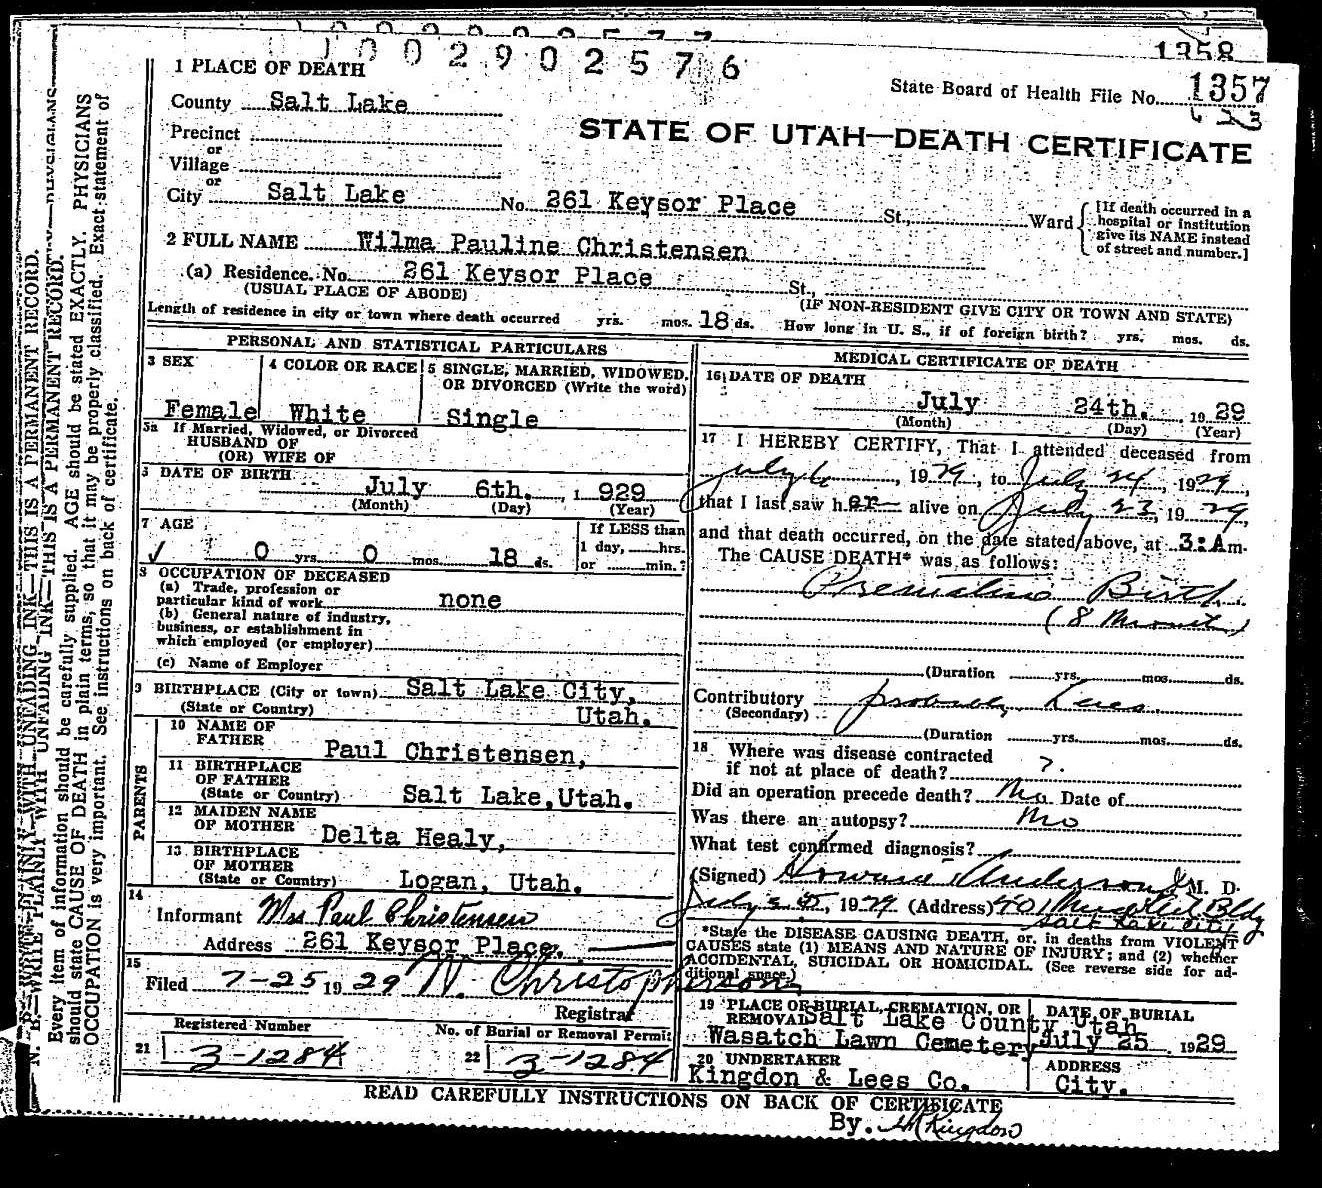 1358
1002902576
State Board of Health File No. 1357
1 PLACE OF DEATH
County Salt Lake
STATE OF UTAH—DEATH CERTIFICATE
Precinct
or
Village
or
City Salt Lake No. 261 Keysor Place St., Ward
[If death occurred in a
hospital or institution
give its NAME instead
of street and number.]
2 FULL NAME Wilma Pauline Christensen
(a) Residence. No. 261 Keysor Place St.,
(USUAL PLACE OF ABODE) (IF NON-RESIDENT GIVE CITY OR TOWN AND STATE)
Length of residence in city or town where death occurred yrs. mos. 18 ds. How long in U. S., if of foreign birth? yrs. mos. ds.
PERSONAL AND STATISTICAL PARTICULARS
3 SEX
Female
4 COLOR OR RACE
White
5 SINGLE, MARRIED, WIDOWED,
OR DIVORCED (Write the word)
Single
5a If Married, Widowed, or Divorced
HUSBAND OF
(OR) WIFE OF
DATE OF BIRTH
July 6th. 1929
(Month) (Day) (Year)
7 AGE
0 yrs. 0 mos. 18 ds.
If LESS than
1 day, hrs.
or min.?
8 OCCUPATION OF DECEASED
(a) Trade, profession or
particular kind of work none
(b) General nature of industry,
business, or establishment in
which employed (or employer)
(c) Name of Employer
9 BIRTHPLACE (City or town) Salt Lake City,
(State or Country) Utah.
PARENTS
10 NAME OF
FATHER Paul Christensen,
11 BIRTHPLACE
OF FATHER
(State or Country) Salt Lake, Utah.
12 MAIDEN NAME
OF MOTHER Delta Healy,
13 BIRTHPLACE
OF MOTHER
(State or Country) Logan, Utah.
14
Informant Mrs Paul Christensen
Address 261 Keysor Place.
15
Filed 7-25 1929 N. Christopherson
Registrar
Registered Number
21 3-1284
No. of Burial or Removal Permit
22 3-1284
MEDICAL CERTIFICATE OF DEATH
16 DATE OF DEATH
July 24th. 1929
(Month) (Day) (Year)
17 I HEREBY CERTIFY, That I attended deceased from
July 6, 1929, to July 24, 1929,
that I last saw her alive on July 23, 1929,
and that death occurred, on the date stated above, at 3:Am.
The CAUSE DEATH* was as follows:
Premature Birth
(8 Month)
(Duration yrs. mos. ds.
Contributory probably Lues
(Secondary)
(Duration yrs. mos. ds.
18 Where was disease contracted
if not at place of death? ?
Did an operation precede death? No Date of
Was there an autopsy? No
What test confirmed diagnosis?
(Signed) Howard Anderson M. D.
July 25, 1929 (Address) 401 Bldg
Salt Lake City
*State the DISEASE CAUSING DEATH, or, in deaths from VIOLENT
CAUSES state (1) MEANS AND NATURE OF INJURY; and (2) whether
ACCIDENTAL, SUICIDAL OR HOMICIDAL. (See reverse side for ad-
ditional space.)
19 PLACE OF BURIAL, CREMATION, OR
REMOVAL Salt Lake County Utah
Wasatch Lawn Cemetery
DATE OF BURIAL
July 25 1929
20 UNDERTAKER
Kingdon & Lees Co.
ADDRESS
City.
READ CAREFULLY INSTRUCTIONS ON BACK OF CERTIFICATE
By. Kingdon
N. B.—WRITE PLAINLY WITH UNFADING INK—THIS IS A PERMANENT RECORD.
Every item of information should be carefully supplied. AGE should be stated EXACTLY. PHYSICIANS
should state CAUSE OF DEATH in plain terms, so that it may be properly classified. Exact statement of
OCCUPATION is very important. See instructions on back of certificate.